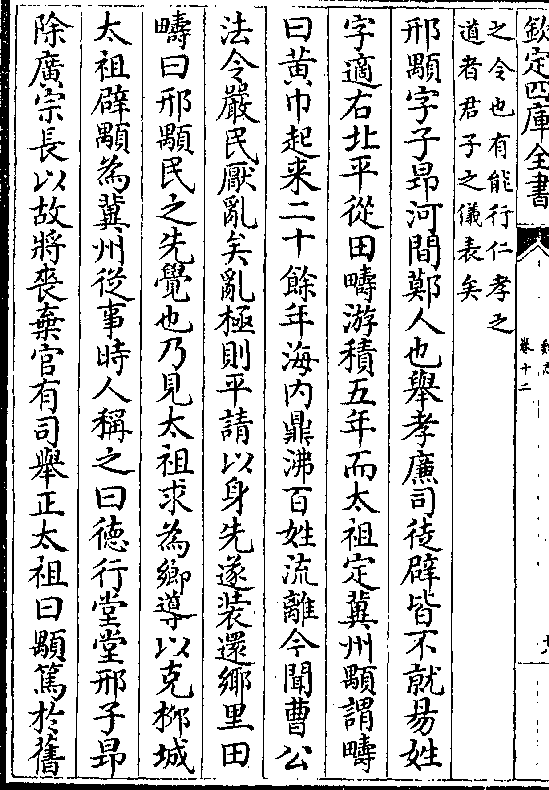 欽定四庫全書
卷十二
之令也有能行仁孝之
道者君子之儀表矣
邢顒字子昻河間鄚人也舉孝廉司徒辟皆不就易姓
字適右北平從田疇游積五年而太祖定冀州顒謂疇
曰黃巾起来二十餘年海内鼎沸百姓流離今聞曹公
法令嚴民厭亂矣亂極則平請以身先遂装還鄉里田
疇曰邢顒民之先覺也乃見太祖求為鄉導以克柳城
太祖辟顒為冀州從事時人稱之曰德行堂堂邢子昻
除廣宗長以故將喪棄官有司舉正太祖曰顒篤於舊